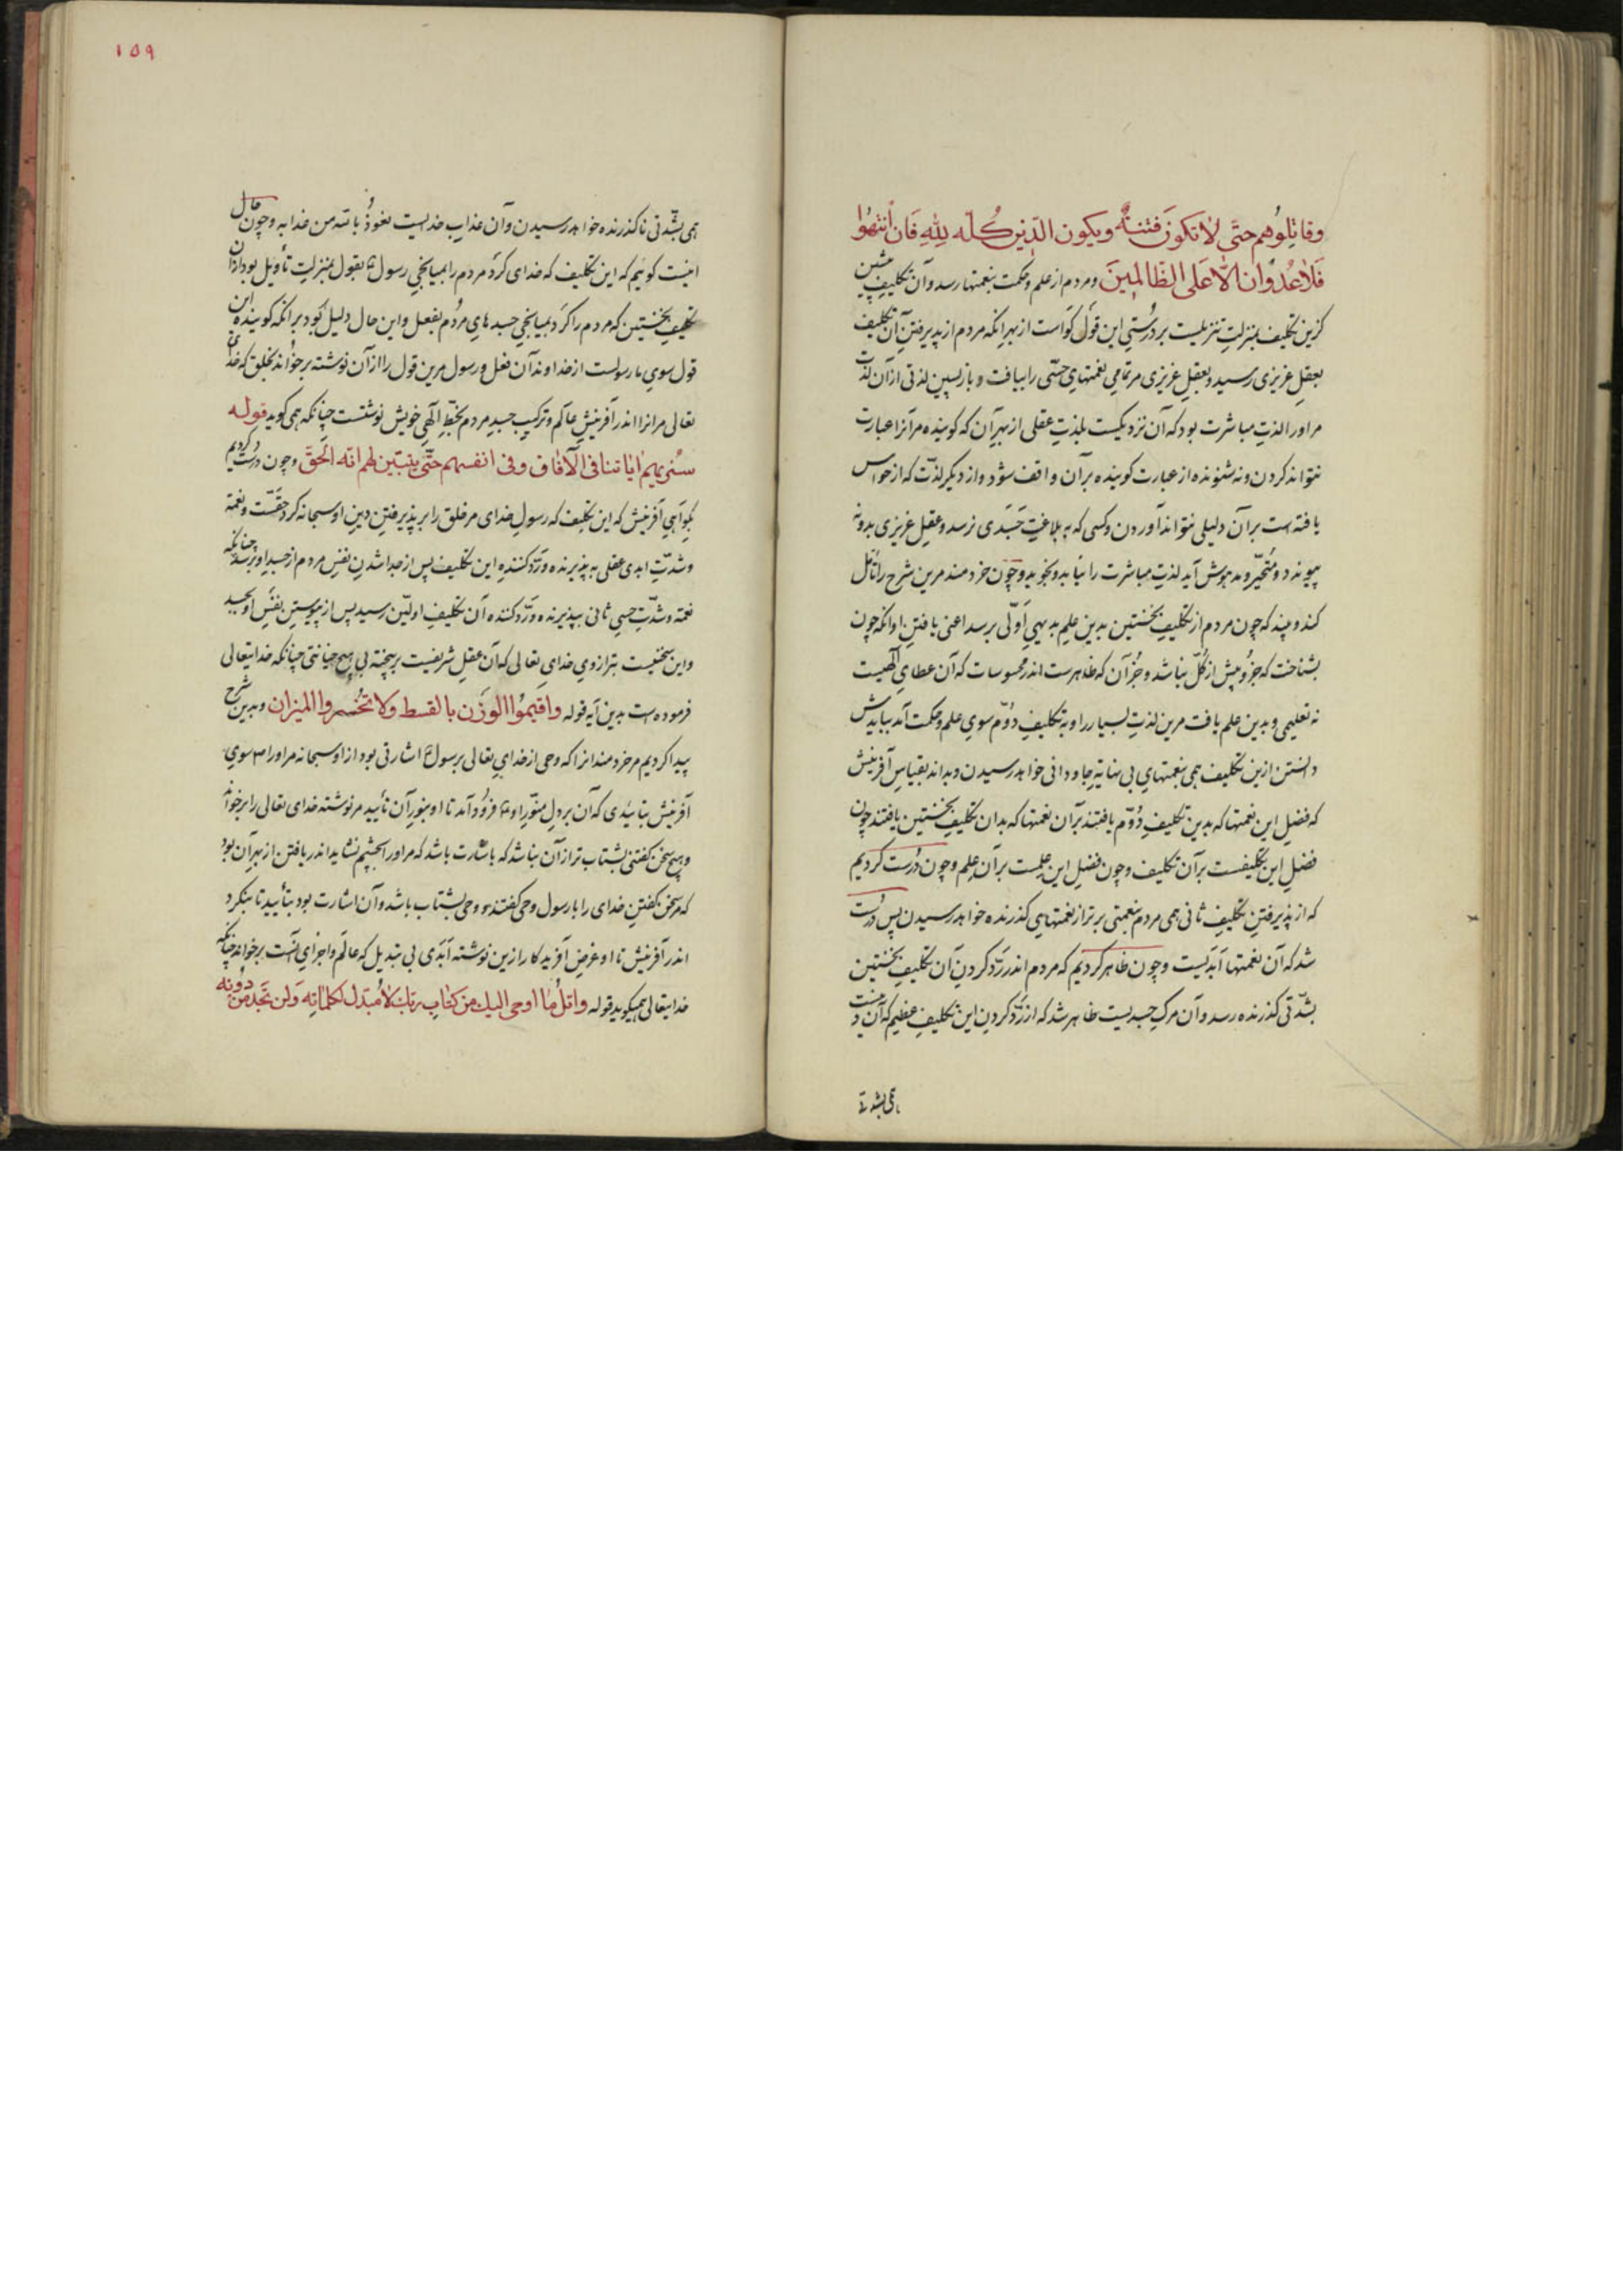 وقاتِلوُهم حتّی لاٰ تکونَ فتنةٌ ویکون الدّین کُلّه لِلّهِ فَاِن اْنتَهوُا
فَلاٰعُدْوٰان الّاعَلی الظّالمِینَ ومردم از علم وحکمت بنعمتها رسد وآن تکلیفِ پیشین
کزین تکلیف بمنزلتِ تنزیلست بر درُستیِ این قول گواست از بهر انکه مردم از پذیرفتنِ آن تکلیف
بعقلِ غریزی رسید وبعقلِ غریزی مر تمامیِ نعمتهایِ حسّی را بیافت وبازپسین لذتی از آن لذّات
مراورا لذتِ مباشرت بود که آن نزدیکست بلذتِ عقلی از بهرِ آن که کوینده مرآنرا عبارت
نتواند کردن ونه شنونده از عبارت کوینده بر آن واقف شود واز دیکر لذّت که از حواس
یافته است بر آن دلیلی نتواند آوردن وکسی که به بلاغیتِ جَسَدی نرسد وعقلِ غریزی بدو نه
پیوندد ومُتحیّر ومدهوش آید لذتِ مباشرت را نیابد ونجوید وچون خردمند مرین شرح را تأمّل
کند وبیند که چون مردم از تکلیفِ نخستین بدین علمِ بدیهیِ اَوّلی برسد اعنی یافتنِ اوانکه چون
بشناخت که جزُو بیش از کُلّ نباشد وجُز آن که ظاهرست اندر محسوسات که آن عطایِ الٓهیست
نه تعلیمی وبدین علم یافت مرین لذتِ بسیار را وبه تکلیفِ دُوّم سویِ علم وحکمت آمد ببایدش
دانستن ازین تکلیف همی بنعمتهایِ بی نهایةِ جاودانی خواهد رسیدن وبداند بقیاسِ آفرینش
که فضلِ این نعمتها که بدین تکلیفِ دُوّم یافتند بر آن نعمتها که بدان تکلیفِ نخستین یافتند چون
فضلِ این تکلیفست بر آن تکلیف وچون فضلِ این علمست بر آن علم وچون دُرست کردیم
که از پذیرفتنِ تکلیفِ ثانی همی مردم بنعمتی برتر از نعمتهایِ کذرنده خواهد رسیدن پس دُرست
شد که آن نعمتها اَبَدیست وچون ظاهر کردیم که مردم اندر رَدّ کردنِ آن تکلیفِ نخستین
بشدّتی کذرنده رسد وآن مرکِ جسدیست ظاهر شد که از رَدّ کردنِ این تکلیفِ عظیم که آن دینست
همی بشدّتی
١٥٩
همی بشّدتی ناکذرنده خواهد رسیدن وآن عذابِ خدایست نعوذُ بالله من عذابه وچون حال
اینست کوئیم که این تکلیف که خدای کرد مردم را بمیانجیِ رسول ع بقول بمنزلتِ تأویل بود ازان
تکلیفِ نخستین که مردم را کرد بمیانجیِ جسدهایِ مردُم بفعل واین حال دلیل بَوَد بر انکه کوینده این
قول سویِ ما رسولست از خداوند آن فعل ورسول مرین قول را از آن نوشته برخوانَد بخلق که خدای
تعالی مرانرا اندر آفرینشِ عالَم وترکیبِ جسدِ مردم بخطّ الٓهیِ خویش نوشتست چنانکه همی کوید قوله
سنُریهِم اٰیاتنا فی الآفاق وفی انفسهم حتّی یتبیّن لهم انّه الحقّ وچون درست کردیم
بکواهیِ آفرینش که این تکلیف که رسولِ خدای مر خلق را بر پذیرفتنِ دینِ او سبحانه کرد حقّست ونعمة
وشدّتِ ابدی عقلی به پذیرنده ورَدّ کننده این تکلیف پس از جدا شدنِ نفسِ مردم از جسدِ او برسد چنانکه
نعمة وشدّتِ حسیِ ثانی بپذیرنده ورَدّ کننده آن تکلیفِ اولیّن رسید پس از پیوستنِ نفْسِ او بجسد
واین سخنیست بترازویِ خدایِ تعالی که آن عقلِ شریفست برسخته بی هیچ خیانتی چنانکه خدایتعالی
فرموده است بدین آیه قوله واقیمُوا الوَزن بالقسط ولا تُخسروا المیزان وبدین شرح
پیدا کردیم مر خردمندانرا که وحی از خدایِ تعالی برسول ع اشارتی بود از او سبحانه مراورا سوی
آفرینش بتأییدی که آن بر دلِ منوّرِ او ع فرُود آمد تا او بنورِ آن تأیید مر نوشته خدای تعالی را برخوانَد
وهیچ سخن کفتنی بشتاب تر از آن نباشد که باشارت باشد که مراورا بچشم نشاید اندر یافتن از بهرِ آن بود
که مر سخن کفتنِ خدای را با رسول وحی کفتند ووحی بشتاب باشد وآن اشارت بود بتأیید تا بنکرد
اندر آفرینش تا او غرضِ آفریدکار ازین نوشته اَبَدی بی تبدیل که عالَم واجزایِ آنست برخواند چنانکه
خدایتعالی همیکوید قوله واتلُ مٰا اوحی الیك من کتابِ ربّك لاٰمُبدّل لکلماتِه وَلن تجَد من دُونِه